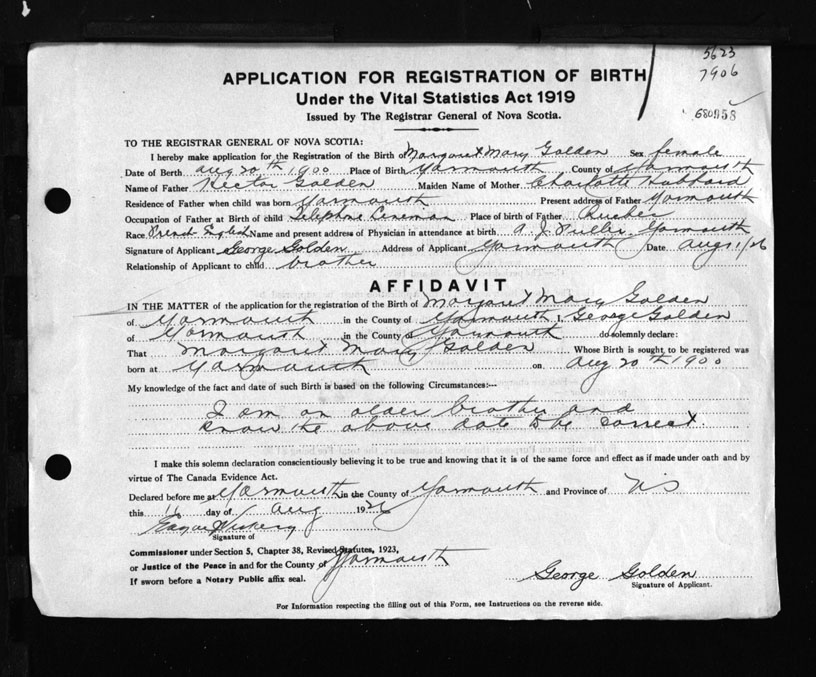 5623
7906
680958
APPLICATION FOR REGISTRATION OF BIRTH
Under the Vital Statistics Act 1919
Issued by The Registrar General of Nova Scotia.
TO THE REGISTRAR GENERAL OF NOVA SCOTIA:
I hereby make application for the Registration of the Birth of Margaret Mary Golden Sex female
Date of Berth aug 20th 1900 Place of Birth Yarmouth County of Yarmouth
Name of Father Hector Golden Maiden Name of Mother Charlotte Hubbard
Residence of Father when child was born Yarmouth Present address of Father Yarmouth
Occupation of Father at Birth of child Telephone Lineman Place of birth of Father Quebec
Race French English Name and present address of Physician in attendance at birth A. J. Fuller Yarmouth
Signature of Applicant George Golden Address of Applicant Yarmouth Date Aug 11/26
Relationship of Applicant to child brother
AFFIDAVIT
IN THE MATTER of the application for the registration of the Birth of Margaret Mary Golden
of Yarmouth in the County of Yarmouth I, George Golden
of Yarmouth in the County of Yarmouth do solemnly declare:
That Margaret Mary Golden Whose Birth is sought to be registered was
born at Yarmouth on Aug 20th 1900
My knowledge of the fact and date of such Birth is based on the following Circumstances:—
I am an older brother and
know the above date to be correct.
I make this solemn declaration conscientiously believing it to be true and knowing that it is of the same force and effect as if made under oath and by
virtue of The Canada Evidence Act.
Declared before me at Yarmouth in the County of Yarmouth and Province of NS
this 11 day of Aug 1926
Signature of
Commissioner under Section 5, Chapter 38, Revised Statutes, 1923,
or Justice of the Peace in and for the County of Yarmouth
If sworn before a Notary Public affix seal.
George Golden
Signature of Applicant.
For Information respecting the filling out of this Form, see Instructions on the reverse side.